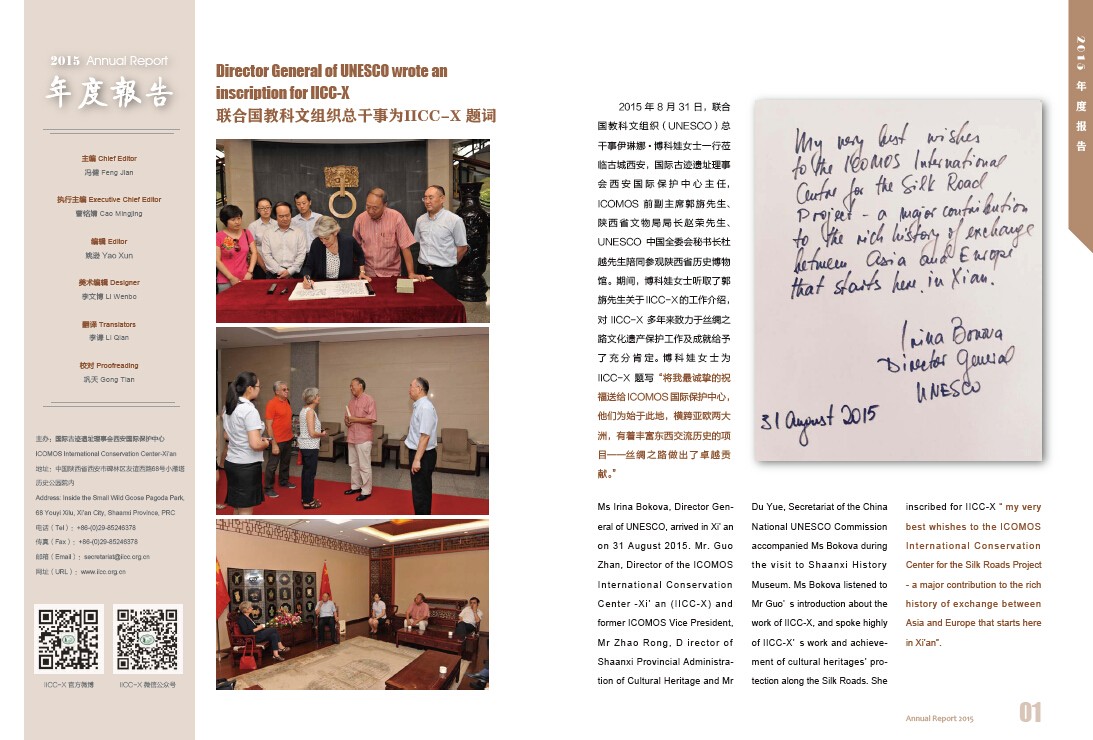 2015 Annual Report
年度報告
主编 Chief Editor
冯健 Feng Jian
执行主编 Executive Chief Editor
曹铭婧 Cao Mingjing
编辑 Editor
姚逊 Yao Xun
美术编辑 Designer
李文博 Li Wenbo
翻译 Translators
李谦 Li Qian
校对 Proofreading
巩天 Gong Tian
主办：国际古迹遗址理事会西安国际保护中心
ICOMOS International Conservation Center-Xi'an
地址：中国陕西省西安市碑林区友谊西路68号小雁塔
历史公园院内
Address: Inside the Small Wild Goose Pagoda Park,
68 Youyi Xilu, Xi'an City, Shaanxi Province, PRC
电话（Tel）：+86-(0)29-85246378
传真（Fax）：+86-(0)29-85246378
邮箱（Email）：secretariat@iicc.org.cn
网址（URL）：www.iicc.org.cn
IICC-X 官方微博
IICC-X 微信公众号
Director General of UNESCO wrote an
inscription for IICC-X
联合国教科文组织总干事为IICC-X 题词
2015 年 8 月 31 日，联合
国教科文组织（UNESCO）总
干事伊琳娜·博科娃女士一行莅
临古城西安，国际古迹遗址理事
会西安国际保护中心主任，
ICOMOS 前副主席郭旃先生、
陕西省文物局局长赵荣先生、
UNESCO 中国全委会秘书长杜
越先生陪同参观陕西省历史博物
馆。期间，博科娃女士听取了郭
旃先生关于IICC-X的工作介绍，
对 IICC-X 多年来致力于丝绸之
路文化遗产保护工作及成就给予
了充分肯定。博科娃女士为
IICC-X 题写 “将我最诚挚的祝
福送给ICOMOS国际保护中心，
他们为始于此地，横跨亚欧两大
洲，有着丰富东西交流历史的项
目——丝绸之路做出了卓越贡
献。”
My very best wishes
to the ICOMOS International
Centre for the Silk Road
Project - a major contribution
to the rich history of exchange
between Asia and Europe
that starts here in Xian.
Irina Bokova
Director General
UNESCO
31 August 2015
Ms Irina Bokova, Director Gen-
eral of UNESCO, arrived in Xi' an
on 31 August 2015. Mr. Guo
Zhan, Director of the ICOMOS
International Conservation
Center -Xi' an (IICC-X) and
former ICOMOS Vice President,
Mr Zhao Rong, D irector of
Shaanxi Provincial Administra-
tion of Cultural Heritage and Mr
Du Yue, Secretariat of the China
National UNESCO Commission
accompanied Ms Bokova during
the visit to Shaanxi History
Museum. Ms Bokova listened to
Mr Guo' s introduction about the
work of IICC-X, and spoke highly
of IICC-X' s work and achieve-
ment of cultural heritages' pro-
tection along the Silk Roads. She
inscribed for IICC-X “ my very
best whishes to the ICOMOS
International Conservation
Center for the Silk Roads Project
- a major contribution to the rich
history of exchange between
Asia and Europe that starts here
in Xi'an”.
2015 年度报告
Annual Report 2015
01